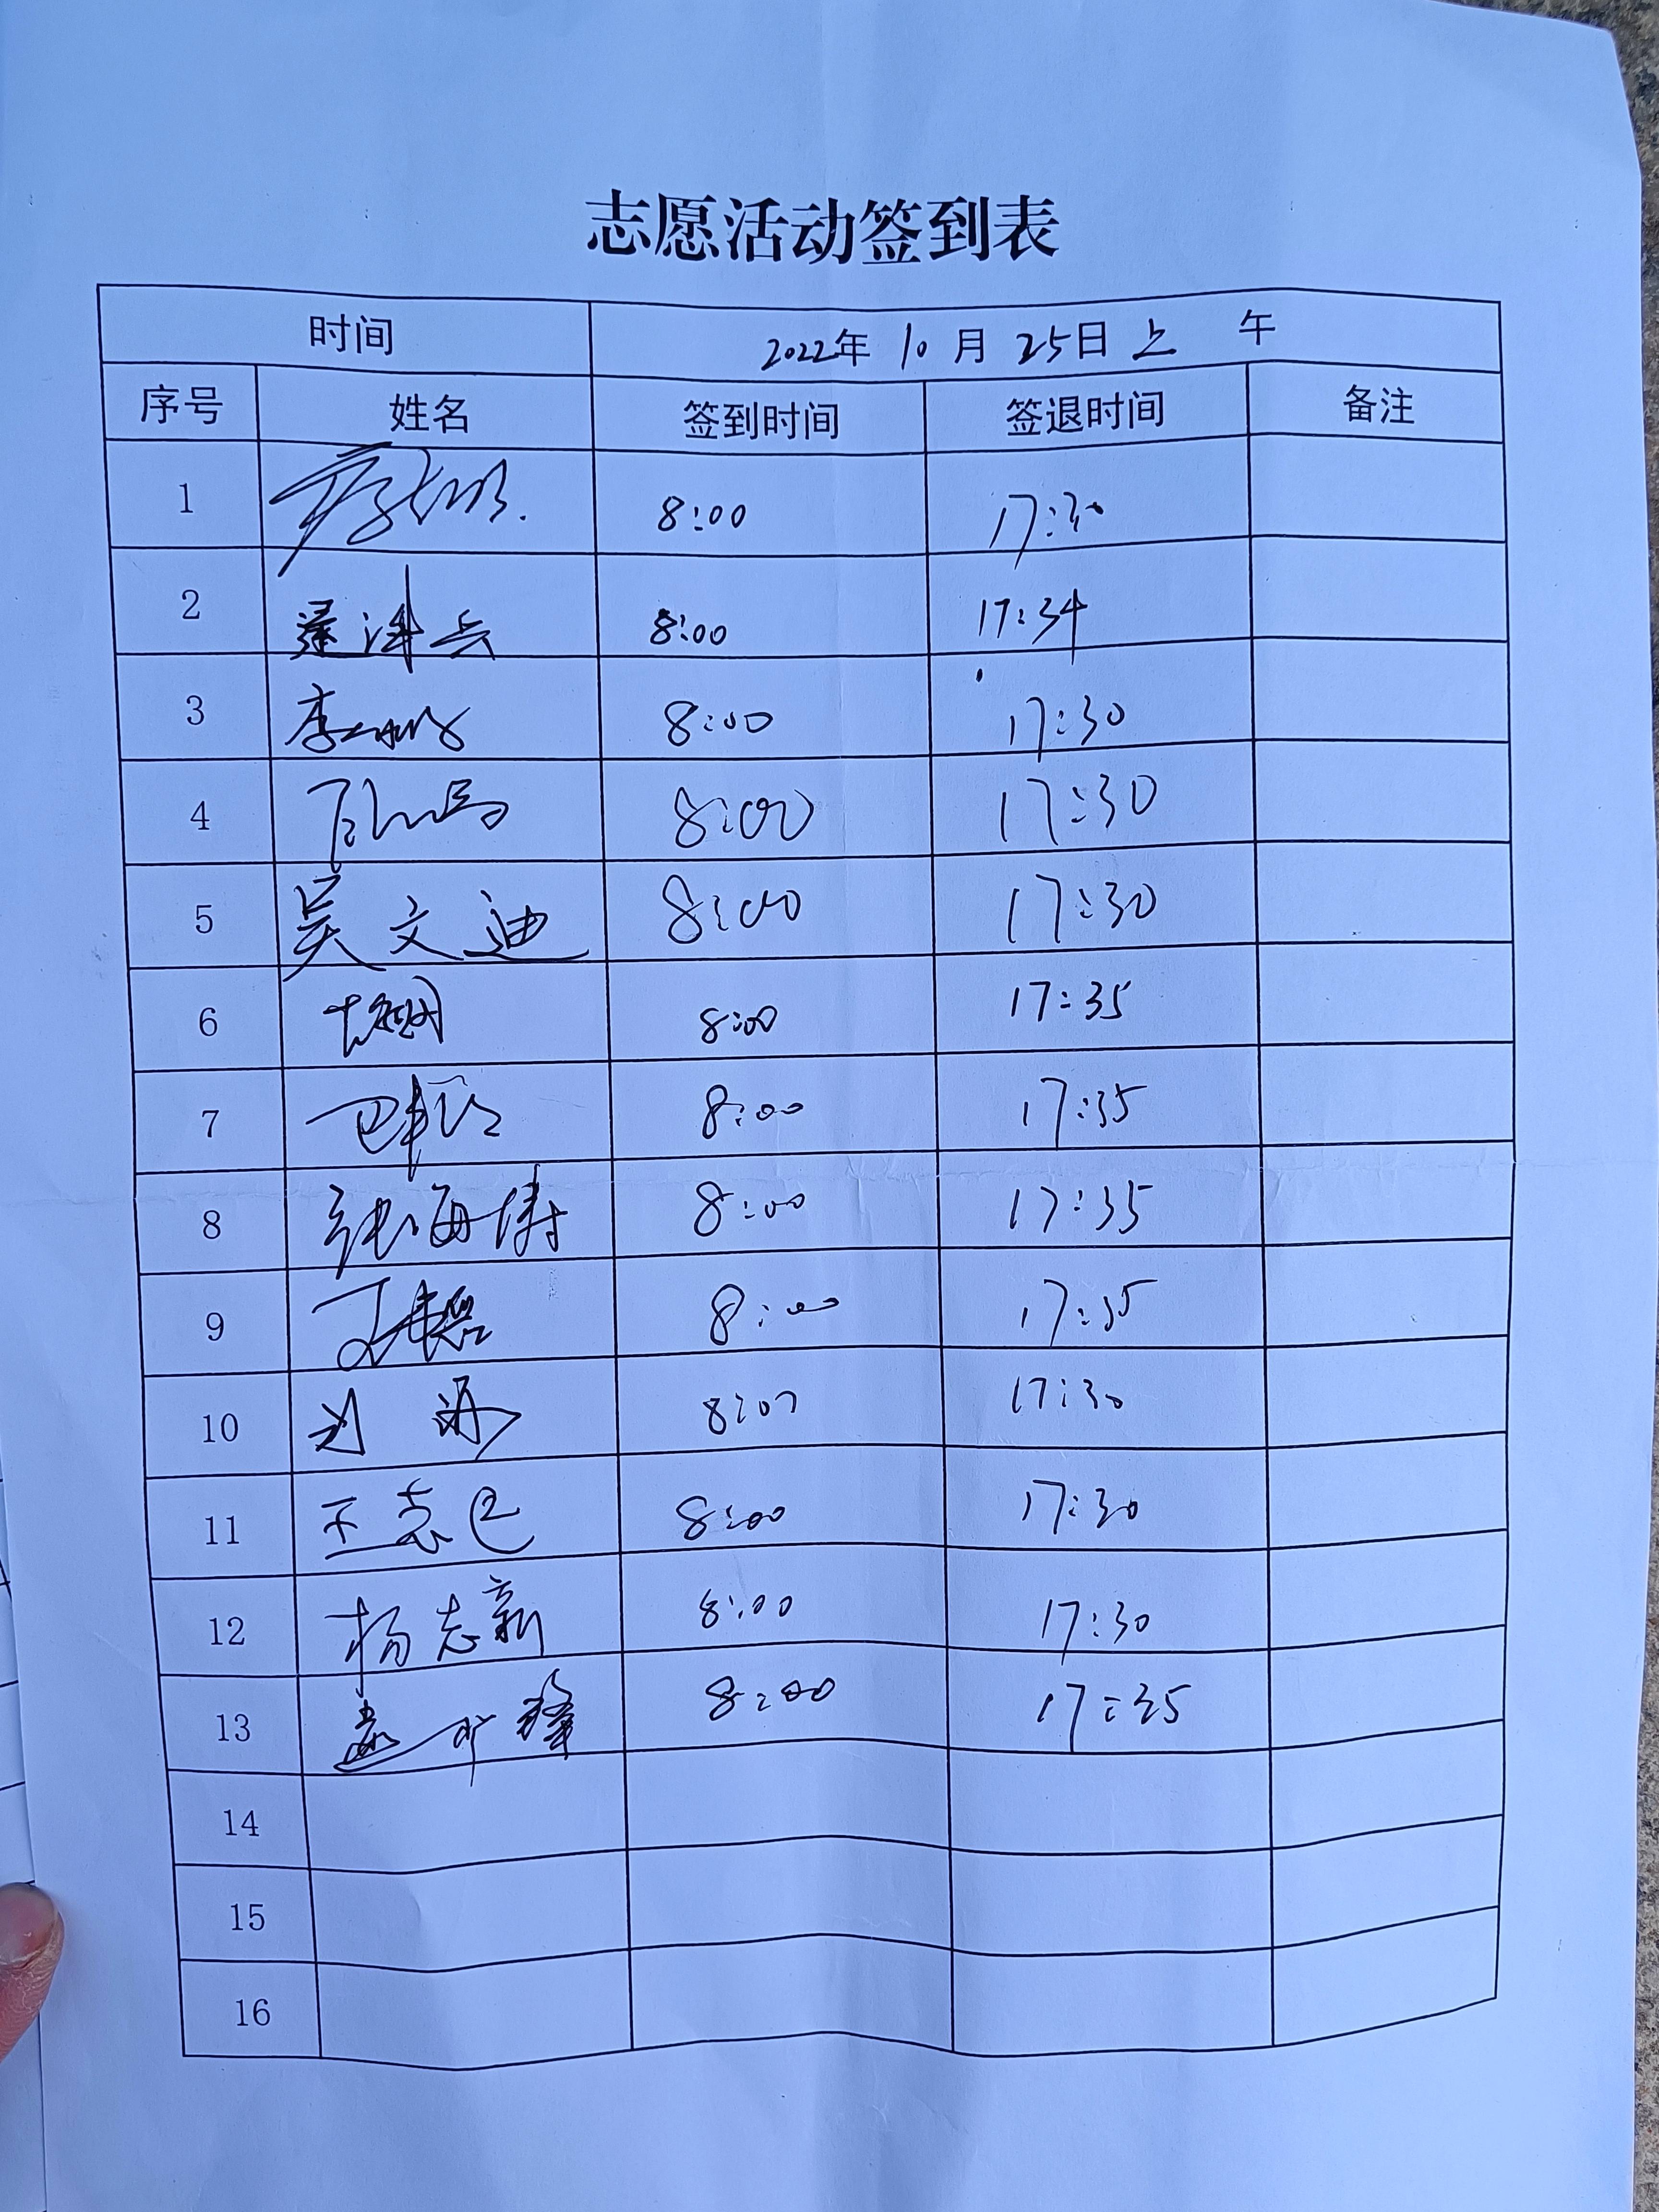 志愿活动签到表
时间 2022年 10 月 25日 上 午
序号 姓名 签到时间 签退时间 备注
1 8:00 17:30
2 8:00 17:34
3 李 8:00 17:30
4 8:00 17:30
5 吴文迪 8:00 17:30
6 8:00 17:35
7 8:00 17:35
8 张海涛 8:00 17:35
9 8:00 17:35
10 刘 8:07 17:30
11 王志 8:00 17:30
12 杨志新 8:00 17:30
13 8:00 17:35
14
15
16